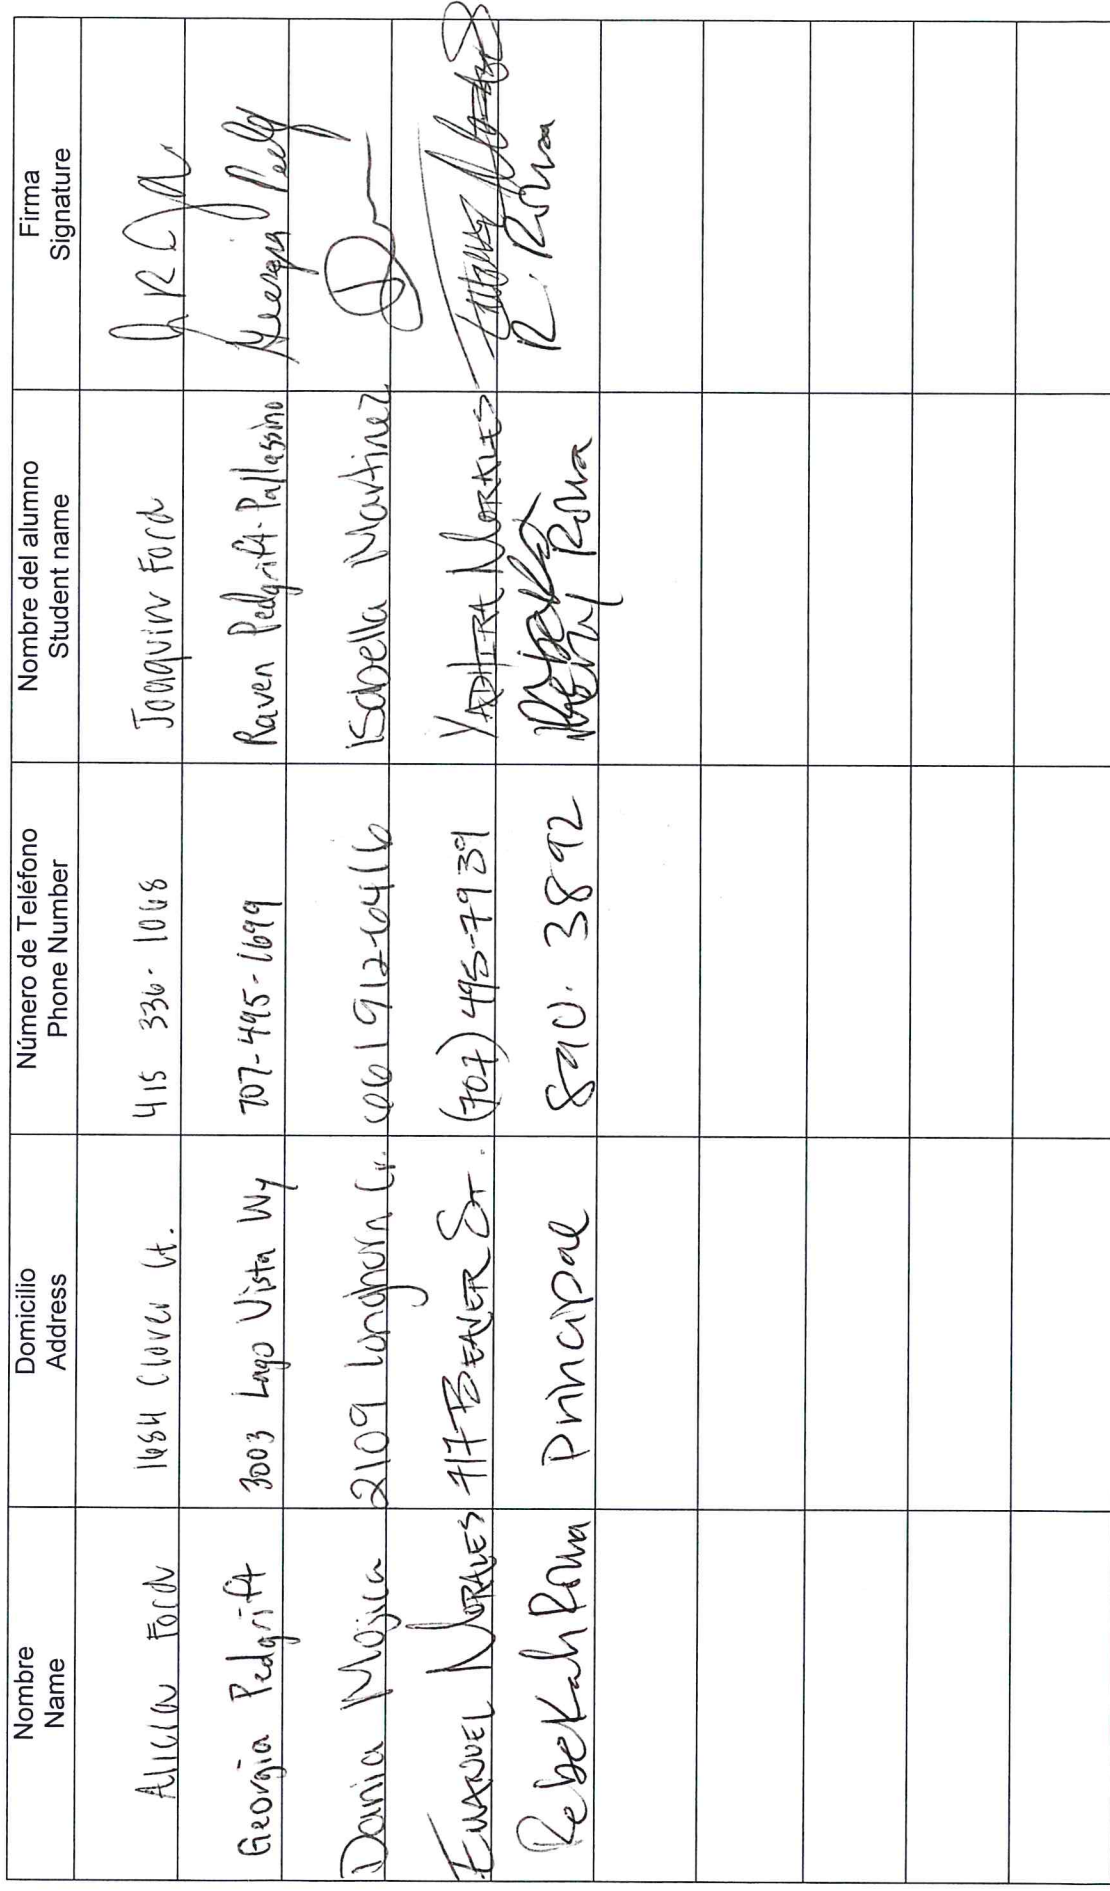 Nombre Name | Domicilio Address | Número de Teléfono Phone Number | Nombre del alumno Student name | Firma Signature
Alicia Ford | 1684 Clover Ct. | 415 336-1068 | Joaquin Ford
Georgia Pedgrift | 3003 Lago Vista Wy | 707-495-1699 | Raven Pedgrift-Pallassino
Dania Mojica | 2109 Longhorn Cr. | 661 912-6416 | isabella Martinez
EMANUEL MORALES | 717 BEAVER ST. | (707) 495-7939 | YADHIRA MORALES
Rebekah Rocha | Principal | 890. 3892 | Rocha | R. Rocha